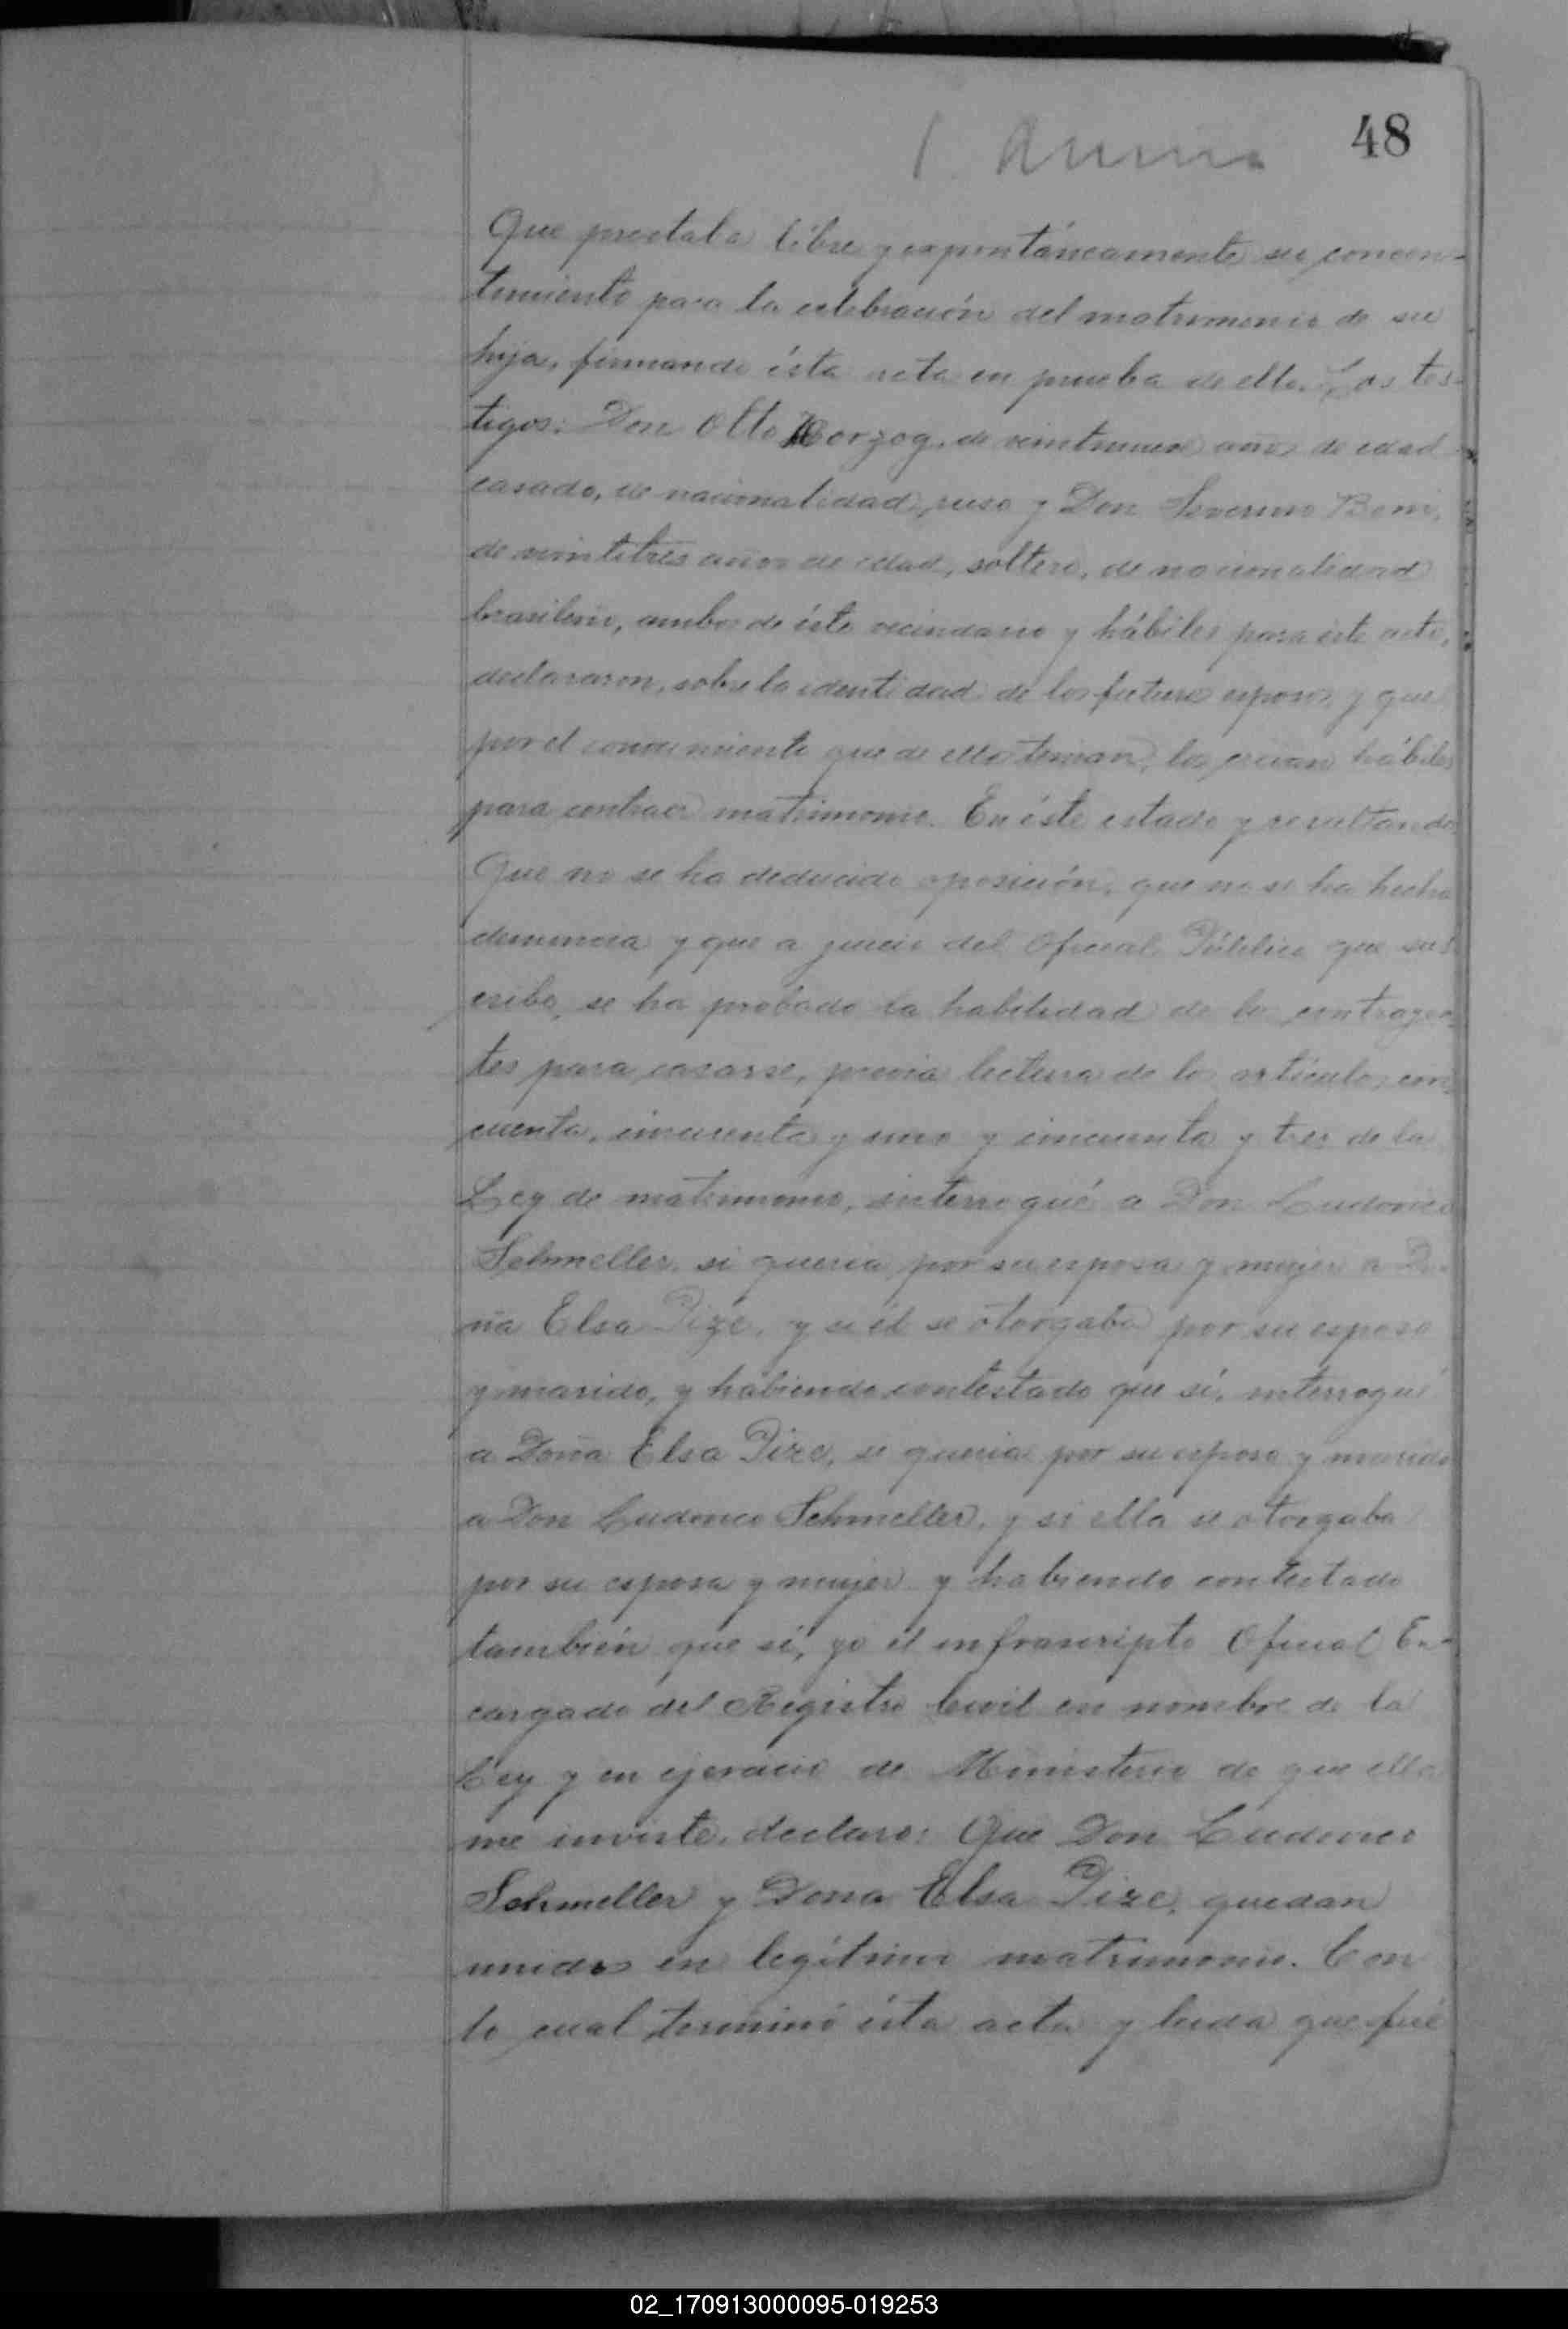 48
Que prestaba libre y expontáneamente su concen-
timiento para la celebración del matrimonio de su
hija, firmando ésta acta en prueba de ello. Los tes-
tigos: Don Otto Herzog, de veintinueve años de edad
casado, de nacionalidad ruso y Don Severino Boni,
de veintitres años de edad, soltero, de nacionalidad
brasileño, ambos de éste vecindario y hábiles para éste acto,
declararon, sobre la identidad de los futuros esposos y que
por el conocimiento que de ellos tenian, los creian hábiles
para contraer matrimonio. En éste estado y resultando:
Que no se ha deducido oposición, que no se ha hecho
denuncia y que a juicio del Oficial Público que sus-
cribe, se ha probado la habilidad de los contrayen-
tes para casarse, previa lectura de los artículos cin-
cuenta, cincuenta y uno y cincuenta y tres de la
Ley de matrimonio, interrogué a Don Ludovico
Schmeller, si queria por su esposa y mujer a Do-
ña Elsa Pize, y si él se otorgaba por su esposo
y marido, y habiendo contestado que sí, interrogué
a Doña Elsa Pize, si queria por su esposo y marido
a Don Ludovico Schmeller, y si ella se otorgaba
por su esposa y mujer y habiendo contestado
también que sí, yo el infrascripto Oficial En-
cargado del Registro Civil en nombre de la
Ley y en ejercicio de Ministerio de que ella
me inviste, declaro: Que Don Ludovico
Schmeller y Dona Elsa Pize, quedan
unidos en legítimo matrimonio. Con
lo cual terminó ésta acta y leida que fué
02_170913000095-019253